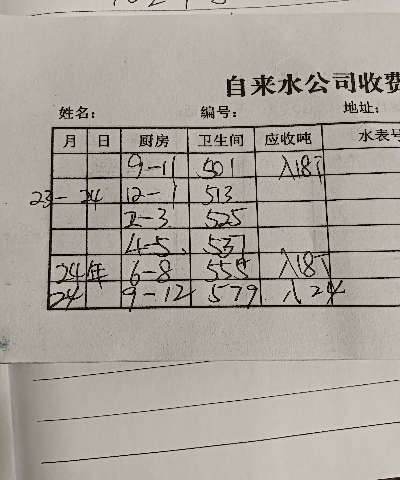 自来水公司收费
姓名： 编号： 地址：
月 日 厨房 卫生间 应收吨 水表号
9-11 501 入18T
23-24 12-1 513
2-3 525
4-5 537
24年 6-8 555 入18T
24 9-12 579 入24